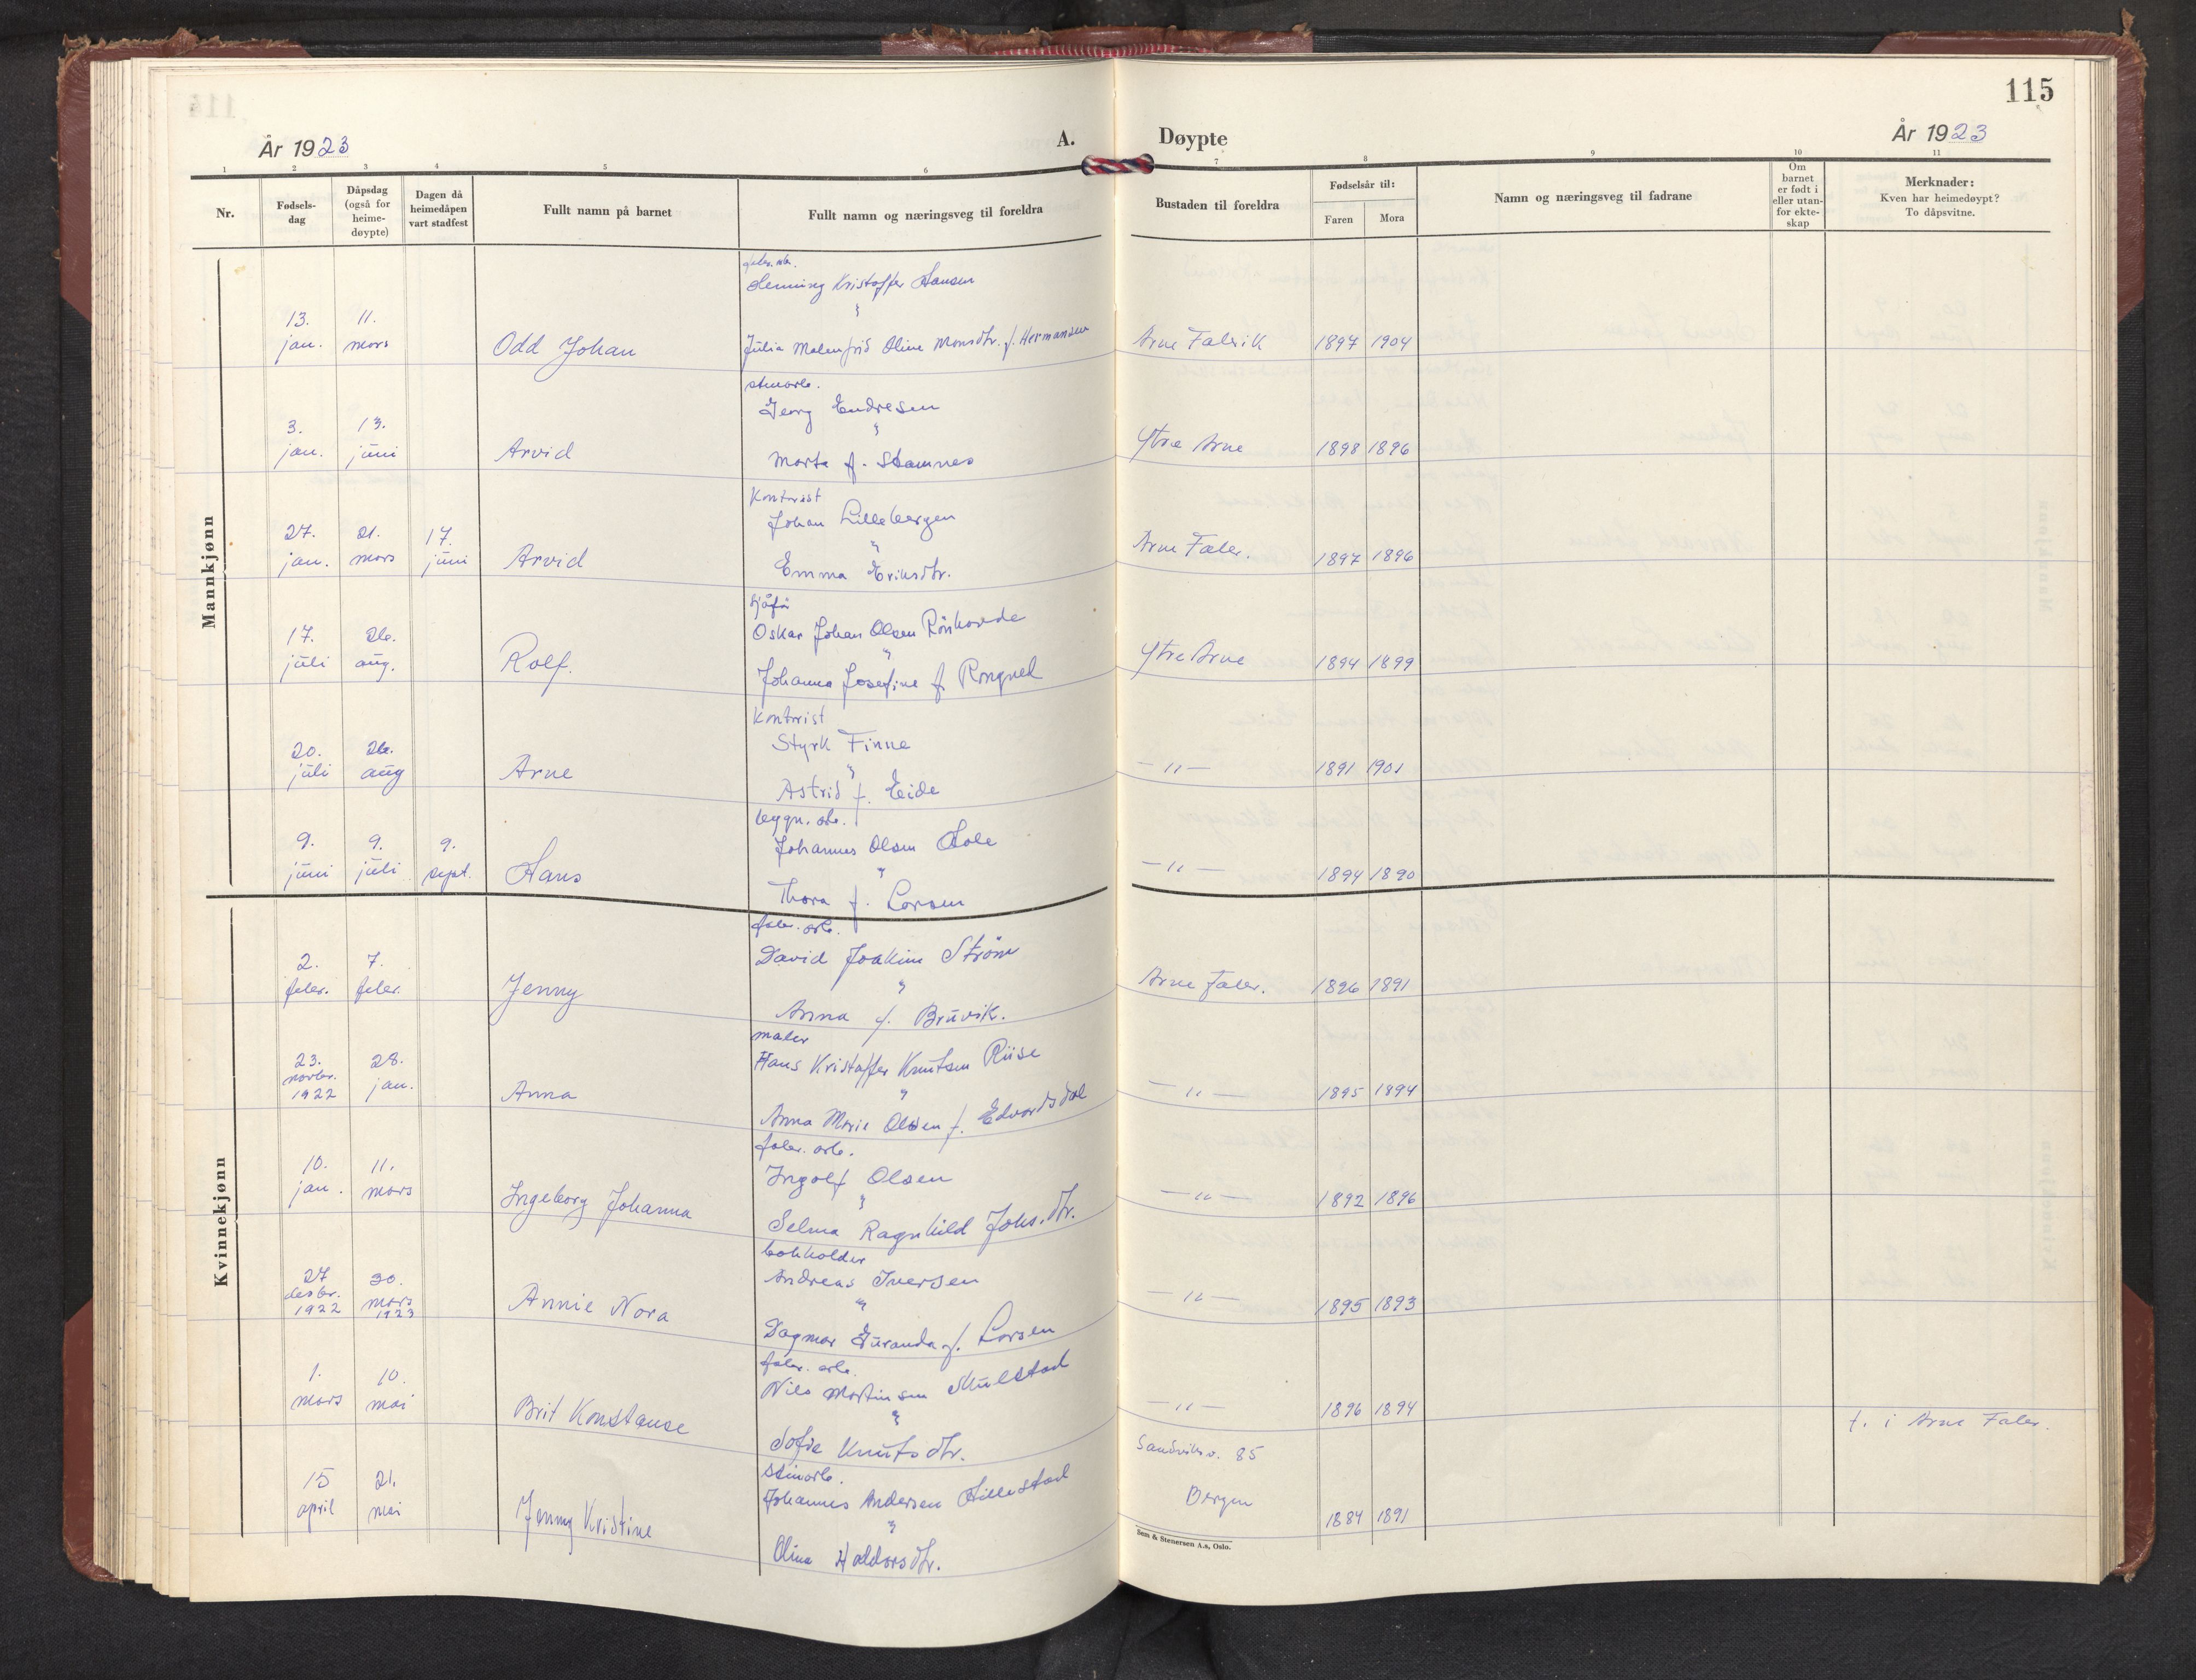 115
År 1923
A.
Døypte
År 1923
1 2 3 4 5 6 7 8 9 10 11
Nr.
Fødsels-
dag
Dåpsdag
(også for
heime-
døypte)
Dagen då
heimedåpen
vart stadfest
Fullt namn på barnet
Fullt namn og næringsveg til foreldra
Bustaden til foreldra
Fødselsår til:
Faren Mora
Namn og næringsveg til fadrane
Om
barnet
er født i
eller utan-
for ekte-
skap
Merknader:
Kven har heimedøypt?
To dåpsvitne.
Mannkjønn
fabr. arb.
Henning Kristoffer Hansen
"
13. 11.
jan. mars Odd Johan Julia Malenfrid Oline Monsdtr. f. Hermansen Arne Fabrik 1897 1904
stenarb.
Georg Endresen
"
3. 13.
jan. juni Arvid Marta f. Stamnes Ytre Arne 1898 1896
Kontorist
Johan Lillebergen
"
27. 21. 17.
jan. mars juni Arvid Emma Eriksdtr. Arne Fabr. 1897 1896
sjåfør
Oskar Johan Olsen Rönhovde
"
17. 26.
juli aug. Rolf. Johanna Josefine f. Rongved Ytre Arne 1894 1899
Kontorist
Styrk Finne
"
20. 26.
juli aug Arne Astrid f. Eide — " — 1891 1901
bygn. arb.
Johannes Olsen Hole
"
9. 9. 9.
juni juli sept. Hans Thora f. Larsen — " — 1894 1890
Kvinnekjønn
fabr. arb.
David Joakim Strøm
"
2. 7.
febr. febr. Jenny Anna f. Bruvik. Arne Fabr. 1896 1891
maler
Hans Kristoffer Knutsen Riise
"
23. 28.
novbr. jan.
1922 Anna Anna Marie Olsen f. Edvardsdal — " — 1895 1894
fabr. arb.
Ingolf Olsen
"
10. 11.
jan. mars Ingeborg Johanna Selma Ragnhild Johs. dtr. — " — 1892 1896
bokholder
Andreas Iversen
"
27 30.
desbr. mars
1922 1923 Annie Nora Dagmar Guranda f. Larsen — " — 1895 1893
fabr. arb.
Nils Martinsen Skulstad
"
1. 10.
mars mai Brit Konstanse Sofie Knutsdtr. — " — 1896 1894
f. i Arne Fabr.
stenarb.
Johannes Andersen Hillestad
"
15 21.
april mai Jenny Kristine Olina Haldorsdtr. Sandviksv. 85
Bergen 1884 1891
Sem & Stenersen A.s, Oslo.